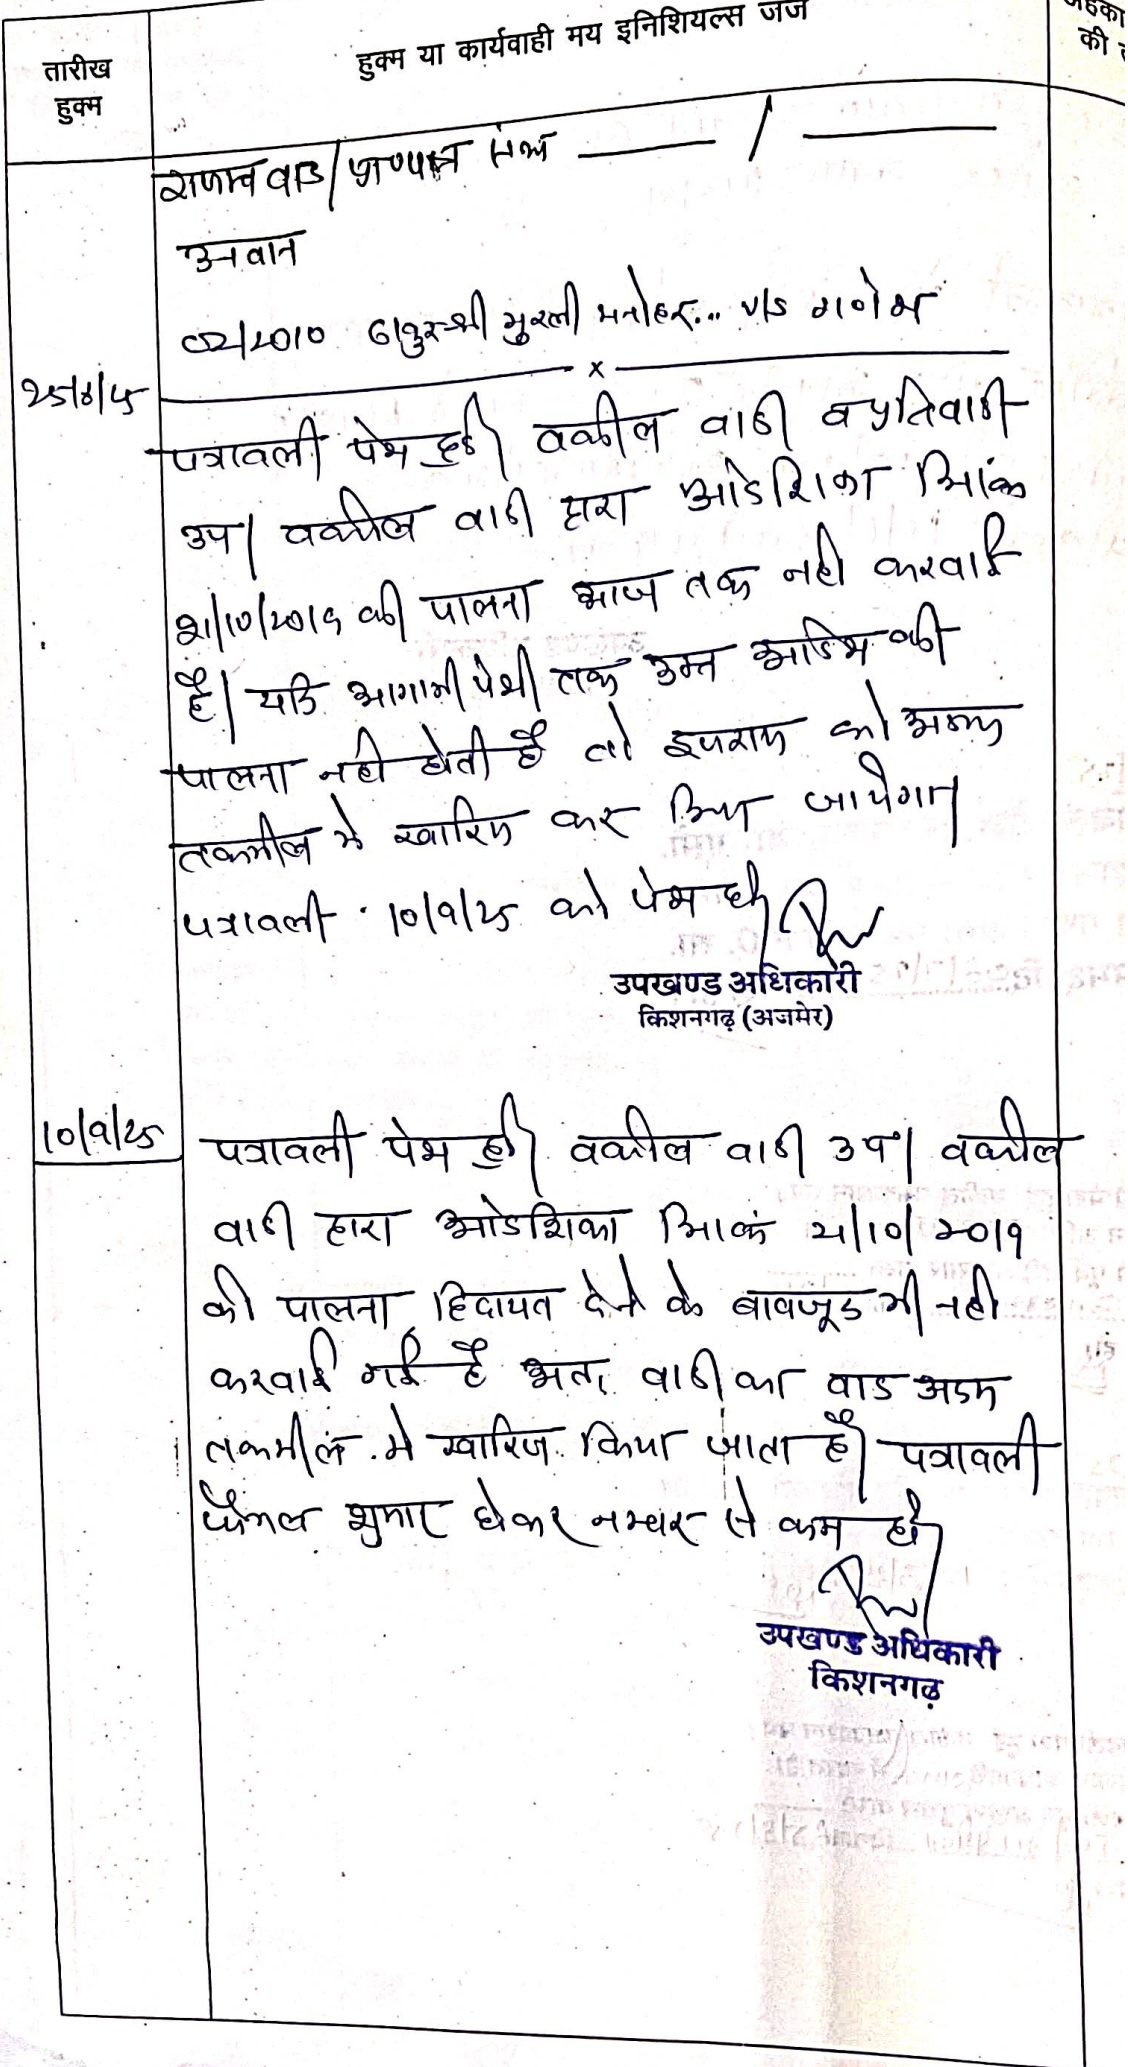 तारीख
हुक्म
हुक्म या कार्यवाही मय इनिशियल्स जज
की
राजस्व वाद/प्रा०पत्र संख्या ——— / ———
उनवान
ठाकुर श्री मुरली मनोहर... v/s गणेश
x
पत्रावली पेश हुई। वकील वादी व प्रतिवादी
उप। वकील वादी द्वारा आदेशिका दिनांक
21/10/2019 की पालना आज तक नही करवाई
है। यदि आगामी पेशी तक उक्त आदेश की
पालना नही होती है तो को अदम
तकमील मे खारिज कर दिया जायेगा।
पत्रावली 10/9/25 को पेश हो।
उपखण्ड अधिकारी
किशनगढ़ (अजमेर)
10/9/25
पत्रावली पेश हुई। वकील वादी उप। वकील
वादी द्वारा आदेशिका दिनांक 21/10/2019
की पालना हिदायत देने के बावजूद भी नही
करवाई गई है अतः वादी का वाद अदम
तकमील मे खारिज किया जाता है। पत्रावली
फैसल शुमार होकर नम्बर से कम हो।
उपखण्ड अधिकारी
किशनगढ़